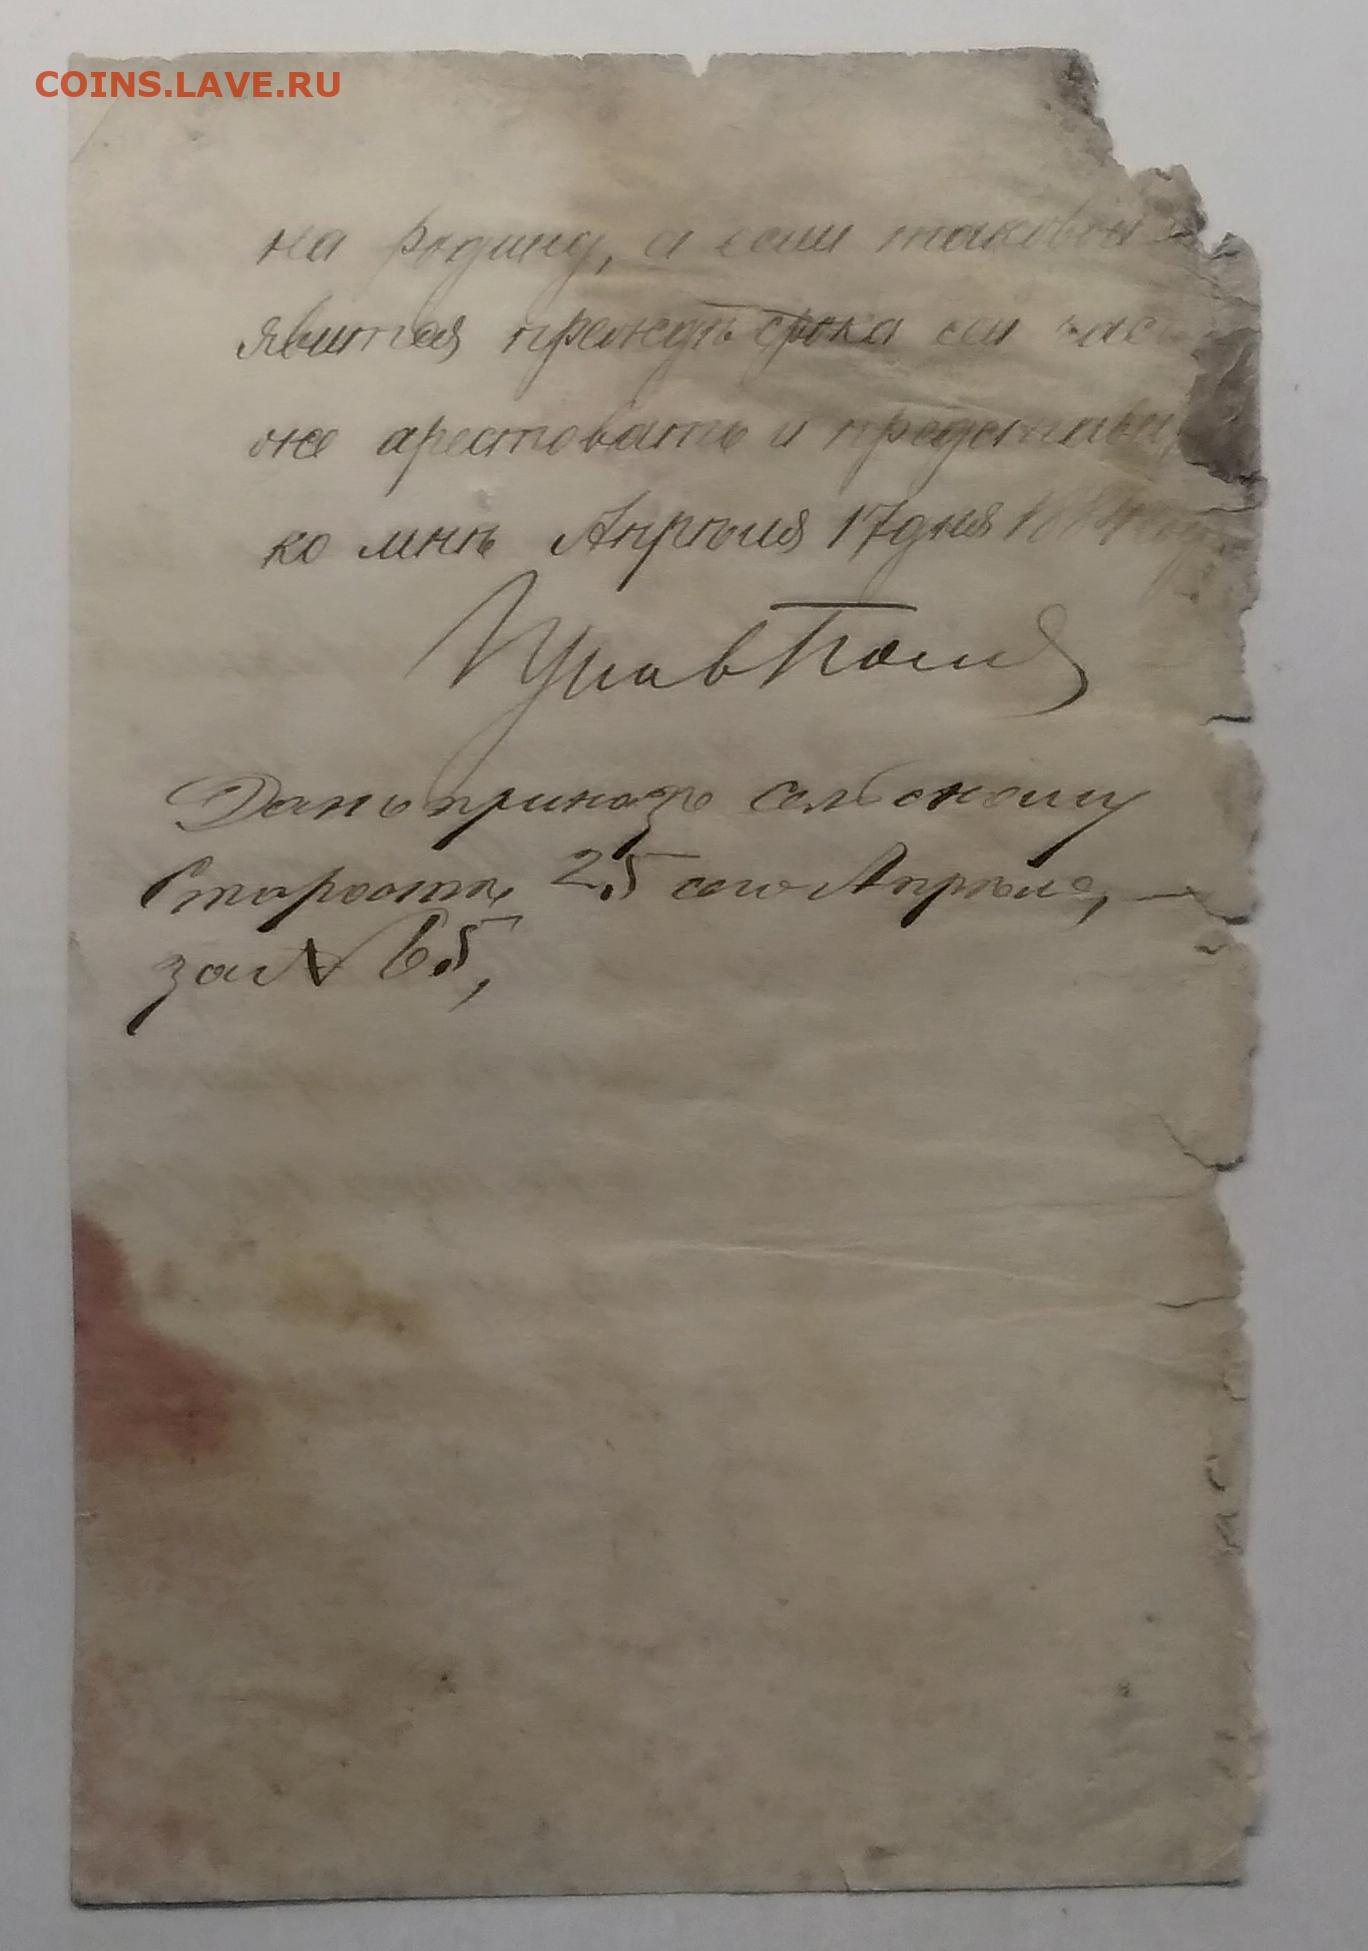 COINS.LAVE.RU
на родину, а если таковой
явится прежде срока сей час
же арестовать и представи
ко мнѣ Апрѣля 17 дня
Данъ приказъ сельскому
Старостѣ 25 сего Апрѣля,
за № 65,